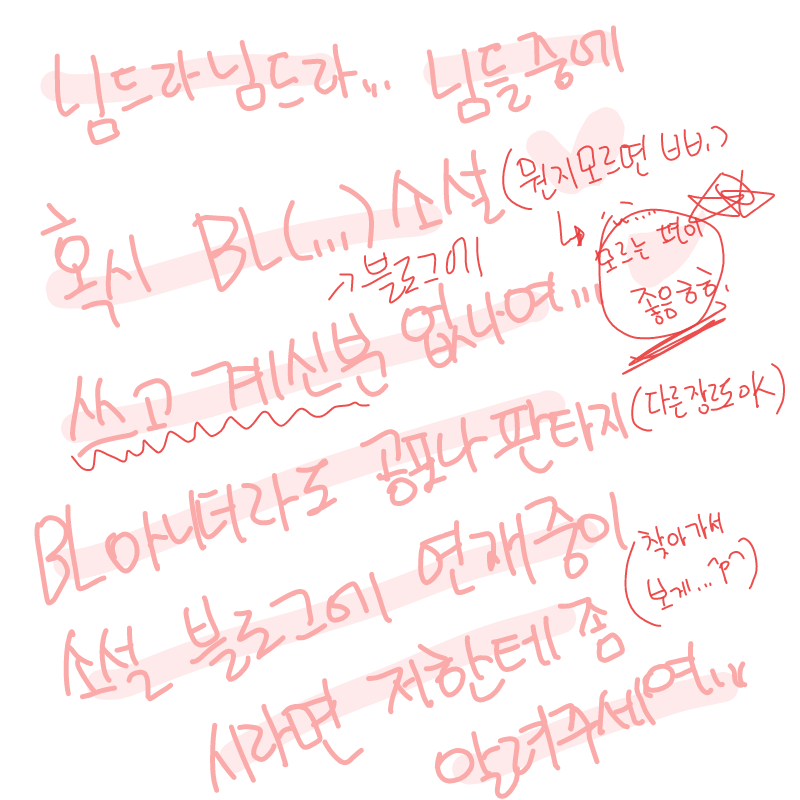 님드라님드라... 님들 중에
혹시 BL(...)소설 (뭔지모르면 빠.)
↳ 모르는 편이
좋음ㅎㅎ.
→블로그에
쓰고 계신분 없나여...
BL아니더라도 공포나 판타지 (다른장르도 OK)
소설 블로그에 연재중이
시라면 저한테 좀 (찾아가서
보게...^p^)
알려주세여...